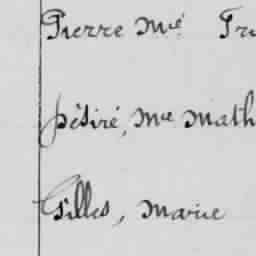 Pierre Mie Fra
Désiré, Mie Math
Gilles, Marie